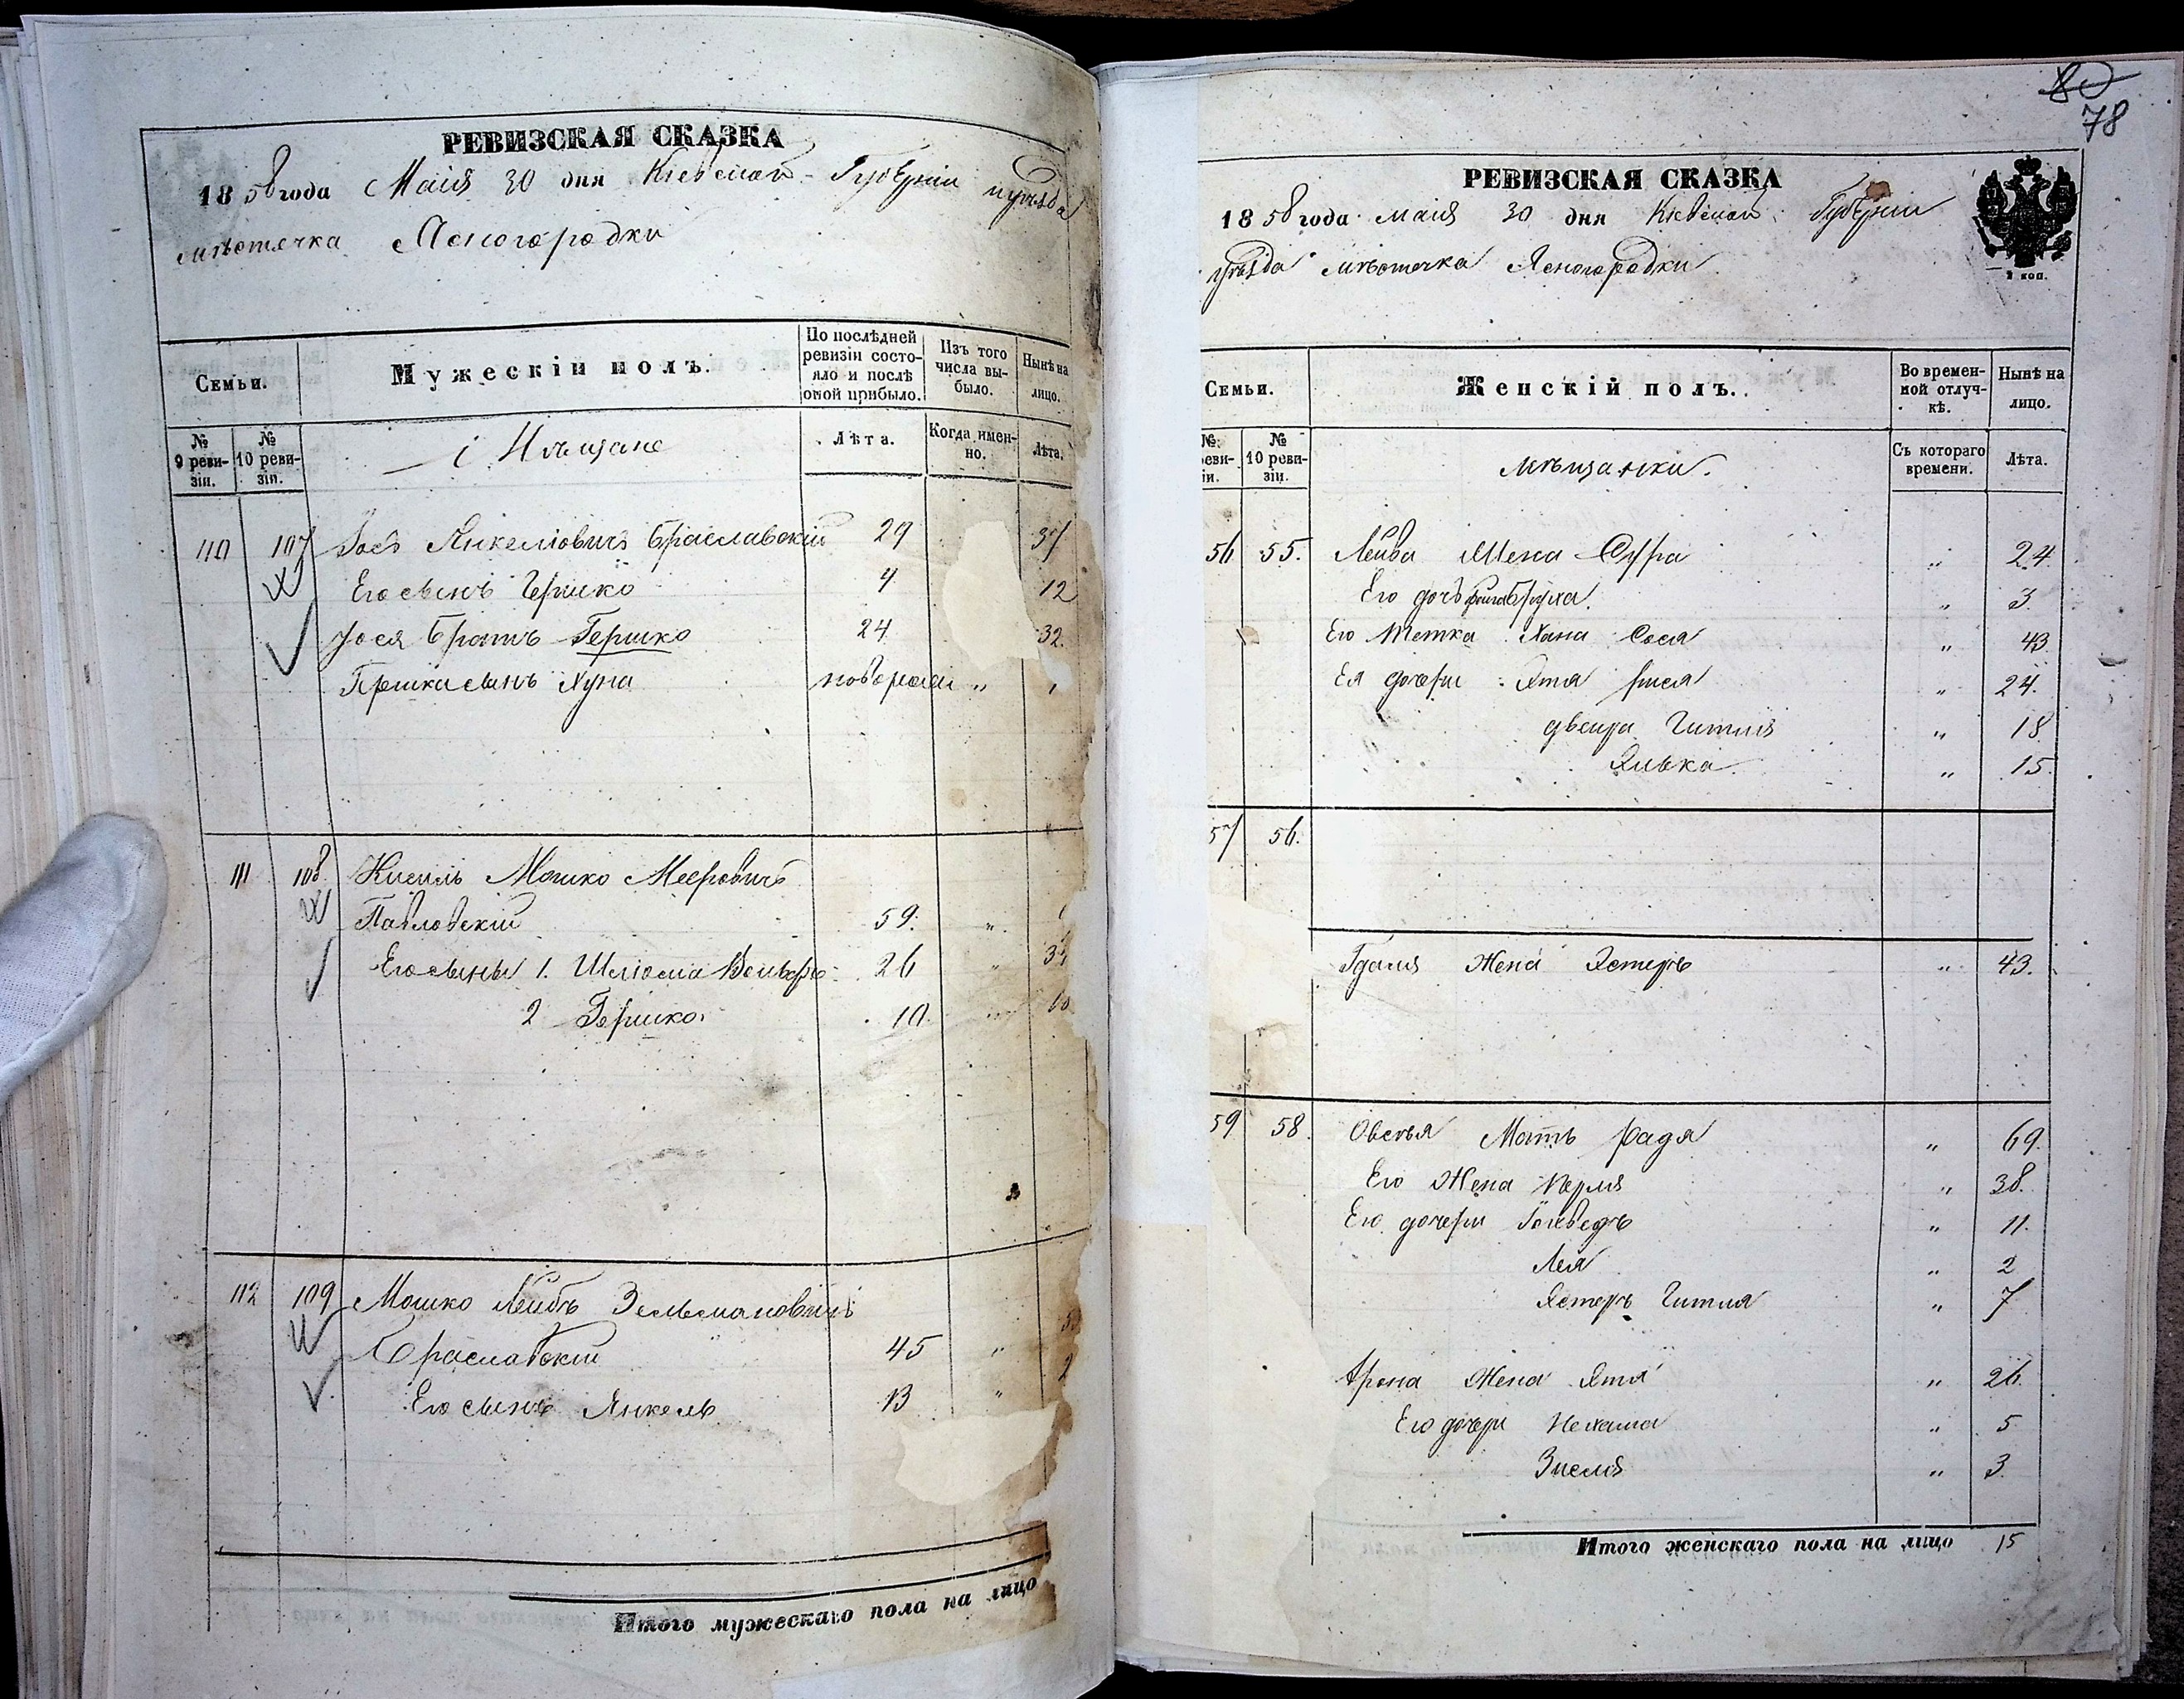 РЕВИЗСКАЯ СКАЗКА
1858 года Маия 30 дня Кіевской Губерніи и уѣзда
мѣстечка Ясногородки
Семьи.
Мужескій полъ.
По послѣдней ревизіи состояло и послѣ оной прибыло.
Изъ того числа выбыло.
Нынѣ на лицо.
№ 9 ревизіи.
№ 10 ревизіи.
Мѣщане
Лѣта.
Когда именно.
Лѣта.
110 107 Іосъ Янкелювичъ Браславскій 29 37
Его сынъ Гершко 4 12
Іося Братъ Гершко 24 32.
Гершка сынъ Хуна новорож „
111 108 Кисиль Мошко Мееровичъ
Павловскій 59. „
Его сыны 1. Шлiома Вольфъ 26 „
2 Гершко. 10. „
112 109 Мошко Лейбъ Зельмановичъ
Браславскій 45 „
Его сынъ Янкель 13 „
Итого мужескаго пола на лицо
80
78
РЕВИЗСКАЯ СКАЗКА
1858 года маия 30 дня Кіевской Губерніи
уѣзда мѣстечка Ясногородки
2 коп.
Семьи.
Женскій полъ.
Во временной отлучкѣ.
Нынѣ на лицо.
№ еви- іи.
№ 10 ревизіи.
мѣщанки.
Съ котораго времени.
Лѣта.
56 55. Лейва Жена Сура „ 24
Его дочь Бруха. „ 3
Его тетка Хана Сося „ 43
Ея дочери Эта Рися „ 24.
Двейра Гитля „ 18
Хивка „ 15.
57 56.
Гдаля Жена Эстеръ „ 43.
59 58. Овсья Мать Радя „ 69.
Его Жена Перля „ 38.
Его дочери Іохведъ „ 11.
Лея „ 2
Эстеръ Гитля „ 7
Арона Жена Эта „ 26.
Его дочери Нехама „ 5
Зисля „ 3.
Итого женскаго пола на лицо 15